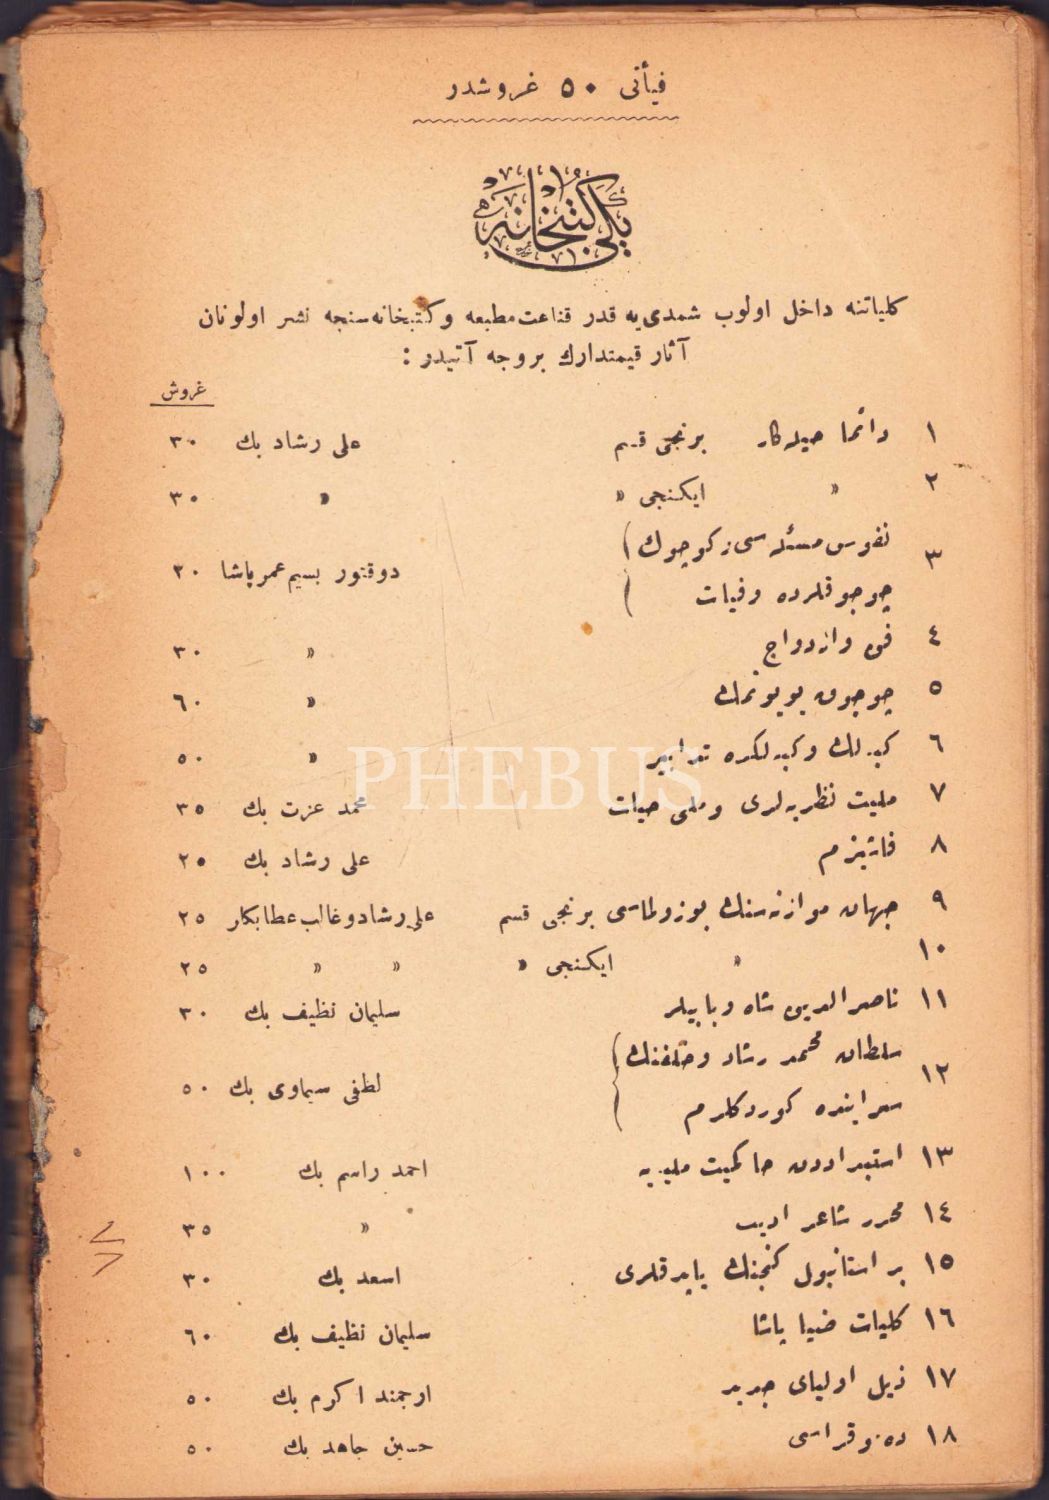 فيأتى ٥٠ غروشدر
يكى كتبخانه
كلياتنه داخل اولوب شمدى يه قدر قناعت مطبعه وكتبخانه سنجه نشر اولونان
آثار قيمتدارك بروجه آتيدر :
غروش
١ دائما حيله كار برنجى قسم على رشاد بك ٣٠
٢ » ايكنجى » » ٣٠
٣ نفوس مسئله سى : كوچوك
چوجوقلرده وفيات دوقتور بسيم عمر پاشا ٢٠
٤ فن وازدواج » ٣٠
٥ چوجوق بويوتمك » ٦٠
٦ كبه لك وكبه لكده تدابير » ٥٠
٧ مليت نظريه لرى وملى حيات محمد عزت بك ٣٥
٨ فاشيزم على رشاد بك ٢٥
٩ جهان موازنه سنك بوزولماسى برنجى قسم على رشاد وغالب عطا بكلر ٢٥
١٠ » ايكنجى » » » ٢٥
١١ ناصر الدين شاه و بابيلر سليمان نظيف بك ٣٠
١٢ سلطان محمد رشاد وخلفنك
سراينده كوردكلرم لطفى سيماوى بك ٥٠
١٣ استبداددن حاكميت مليه يه احمد راسم بك ١٠٠
١٤ محرر شاعر اديب » ٣٥
١٥ بر استانبول كنجنك ياپدقلرى اسعد بك ٣٠
١٦ كليات ضيا پاشا سليمان نظيف بك ٦٠
١٧ ذيل اولياى جديد ارجمند اكرم بك ٥٠
١٨ ده نوقراسى حسين جاهد بك ٥٠
PHEBUS